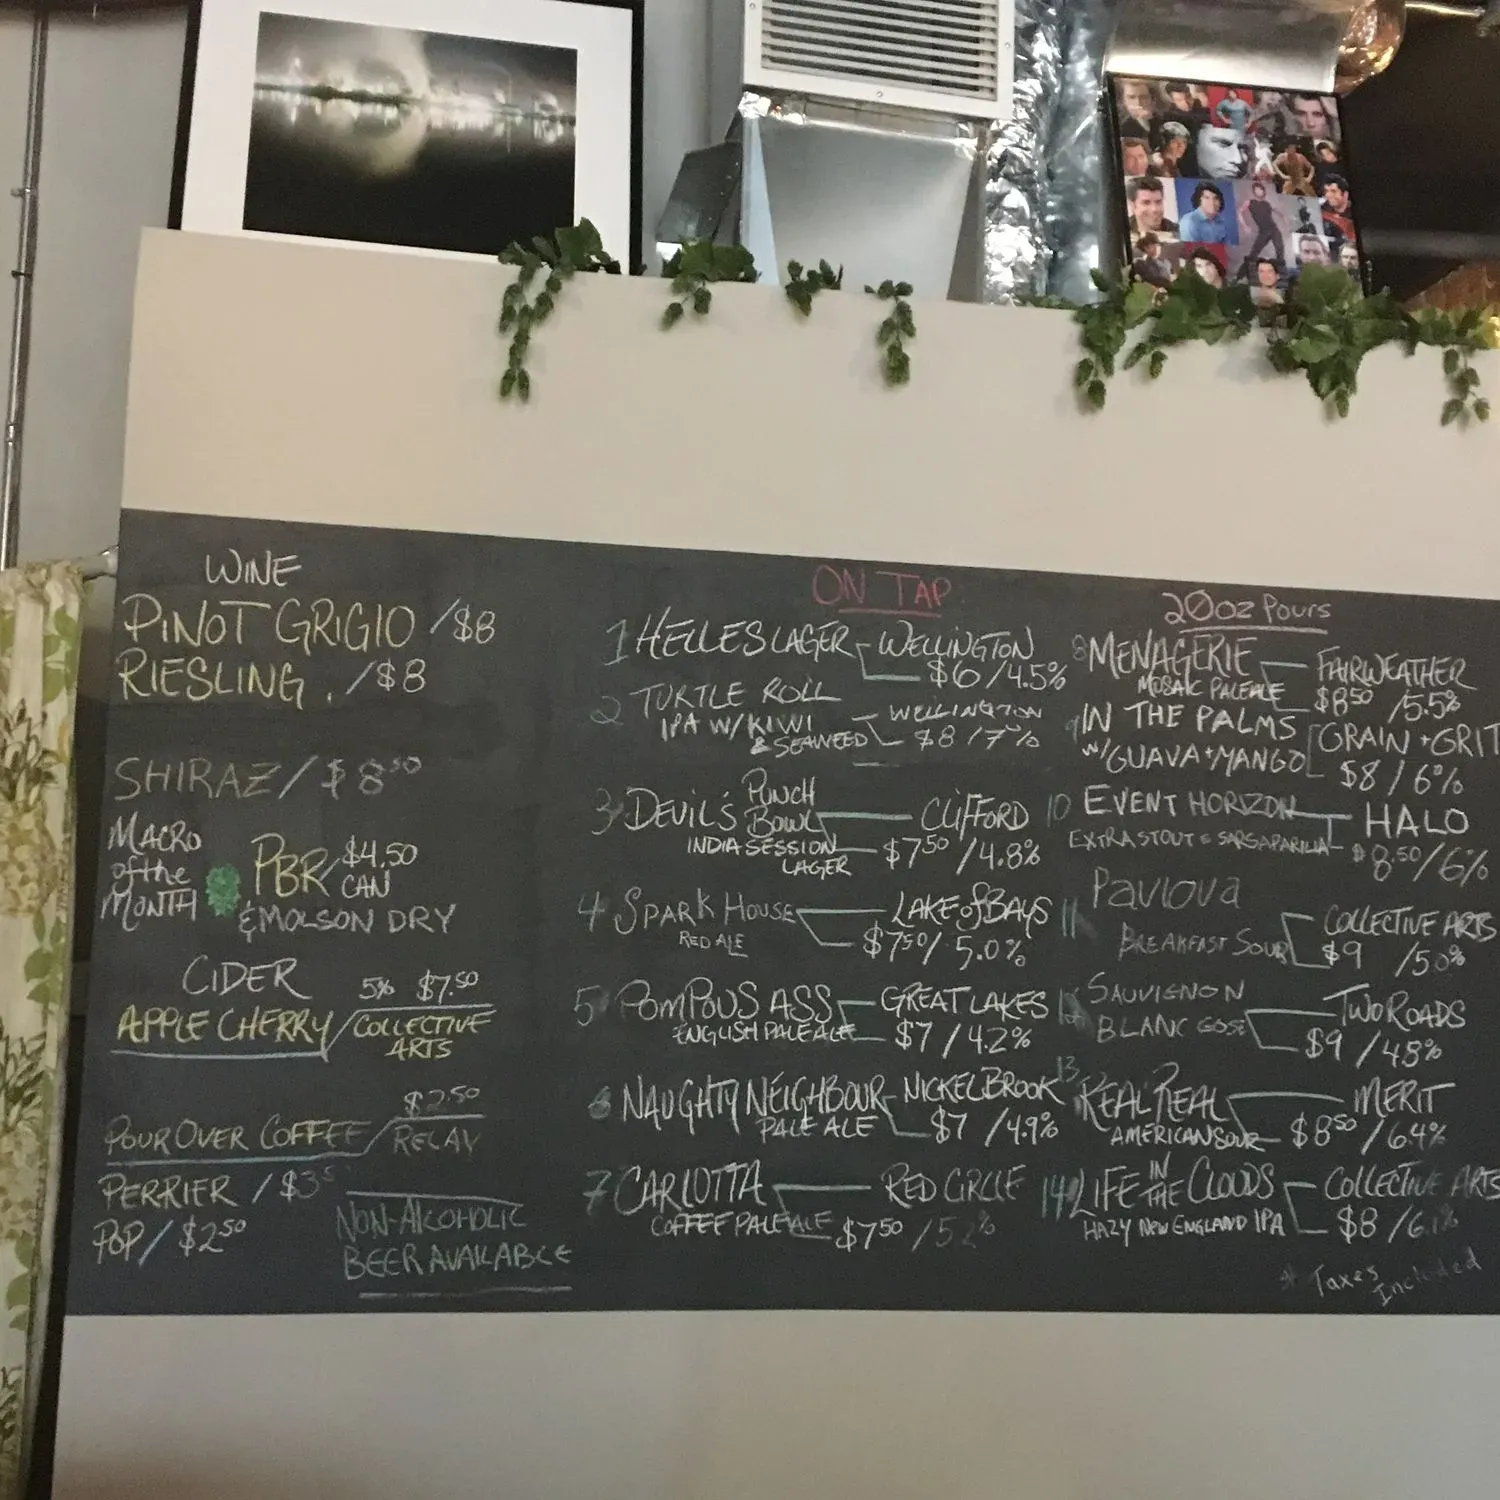 WINE
PINOT GRIGIO / $8
RIESLING . / $8
SHIRAZ / $8.50
MACRO
of the
MONTH
PBR / $4.50
CAN
& MOLSON DRY
CIDER
5% $7.50
APPLE CHERRY / COLLECTIVE
ARTS
$2.50
POUR OVER COFFEE / RELAY
PERRIER / $3
POP / $2.50
NON-ALCOHOLIC
BEER AVAILABLE
ON TAP
1 HELLES LAGER WELLINGTON
$6 / 4.5%
2 TURTLE ROLL
IPA W/ KIWI WELLINGTON
& SEAWEED $8 / 7%
3 DEVIL'S PUNCH
BOWL CLIFFORD
INDIA SESSION
LAGER $7.50 / 4.8%
4 SPARK HOUSE LAKE of BAYS
RED ALE $7.50 / 5.0%
5 POMPOUS ASS GREAT LAKES
ENGLISH PALE ALE $7 / 4.2%
6 NAUGHTY NEIGHBOUR NICKEL BROOK
PALE ALE $7 / 4.9%
7 CARLOTTA RED CIRCLE
COFFEE PALE ALE $7.50 / 5.2%
20oz Pours
8 MENAGERIE FAIRWEATHER
MOSAIC PALE ALE $8.50 / 5.5%
9 IN THE PALMS GRAIN + GRIT
W/ GUAVA + MANGO $8 / 6%
10 EVENT HORIZON HALO
EXTRA STOUT SARSAPARILIA $8.50 / 6%
11 PAVLOVA COLLECTIVE ARTS
BREAKFAST SOUR $9 / 5.0%
12 SAUVIGNON TWO ROADS
BLANC GOSE $9 / 4.8%
13 REAL REAL MERIT
AMERICAN SOUR $8.50 / 6.4%
14 LIFE IN THE CLOUDS COLLECTIVE ARTS
HAZY NEW ENGLAND IPA $8 / 6.1%
* Taxes
Included